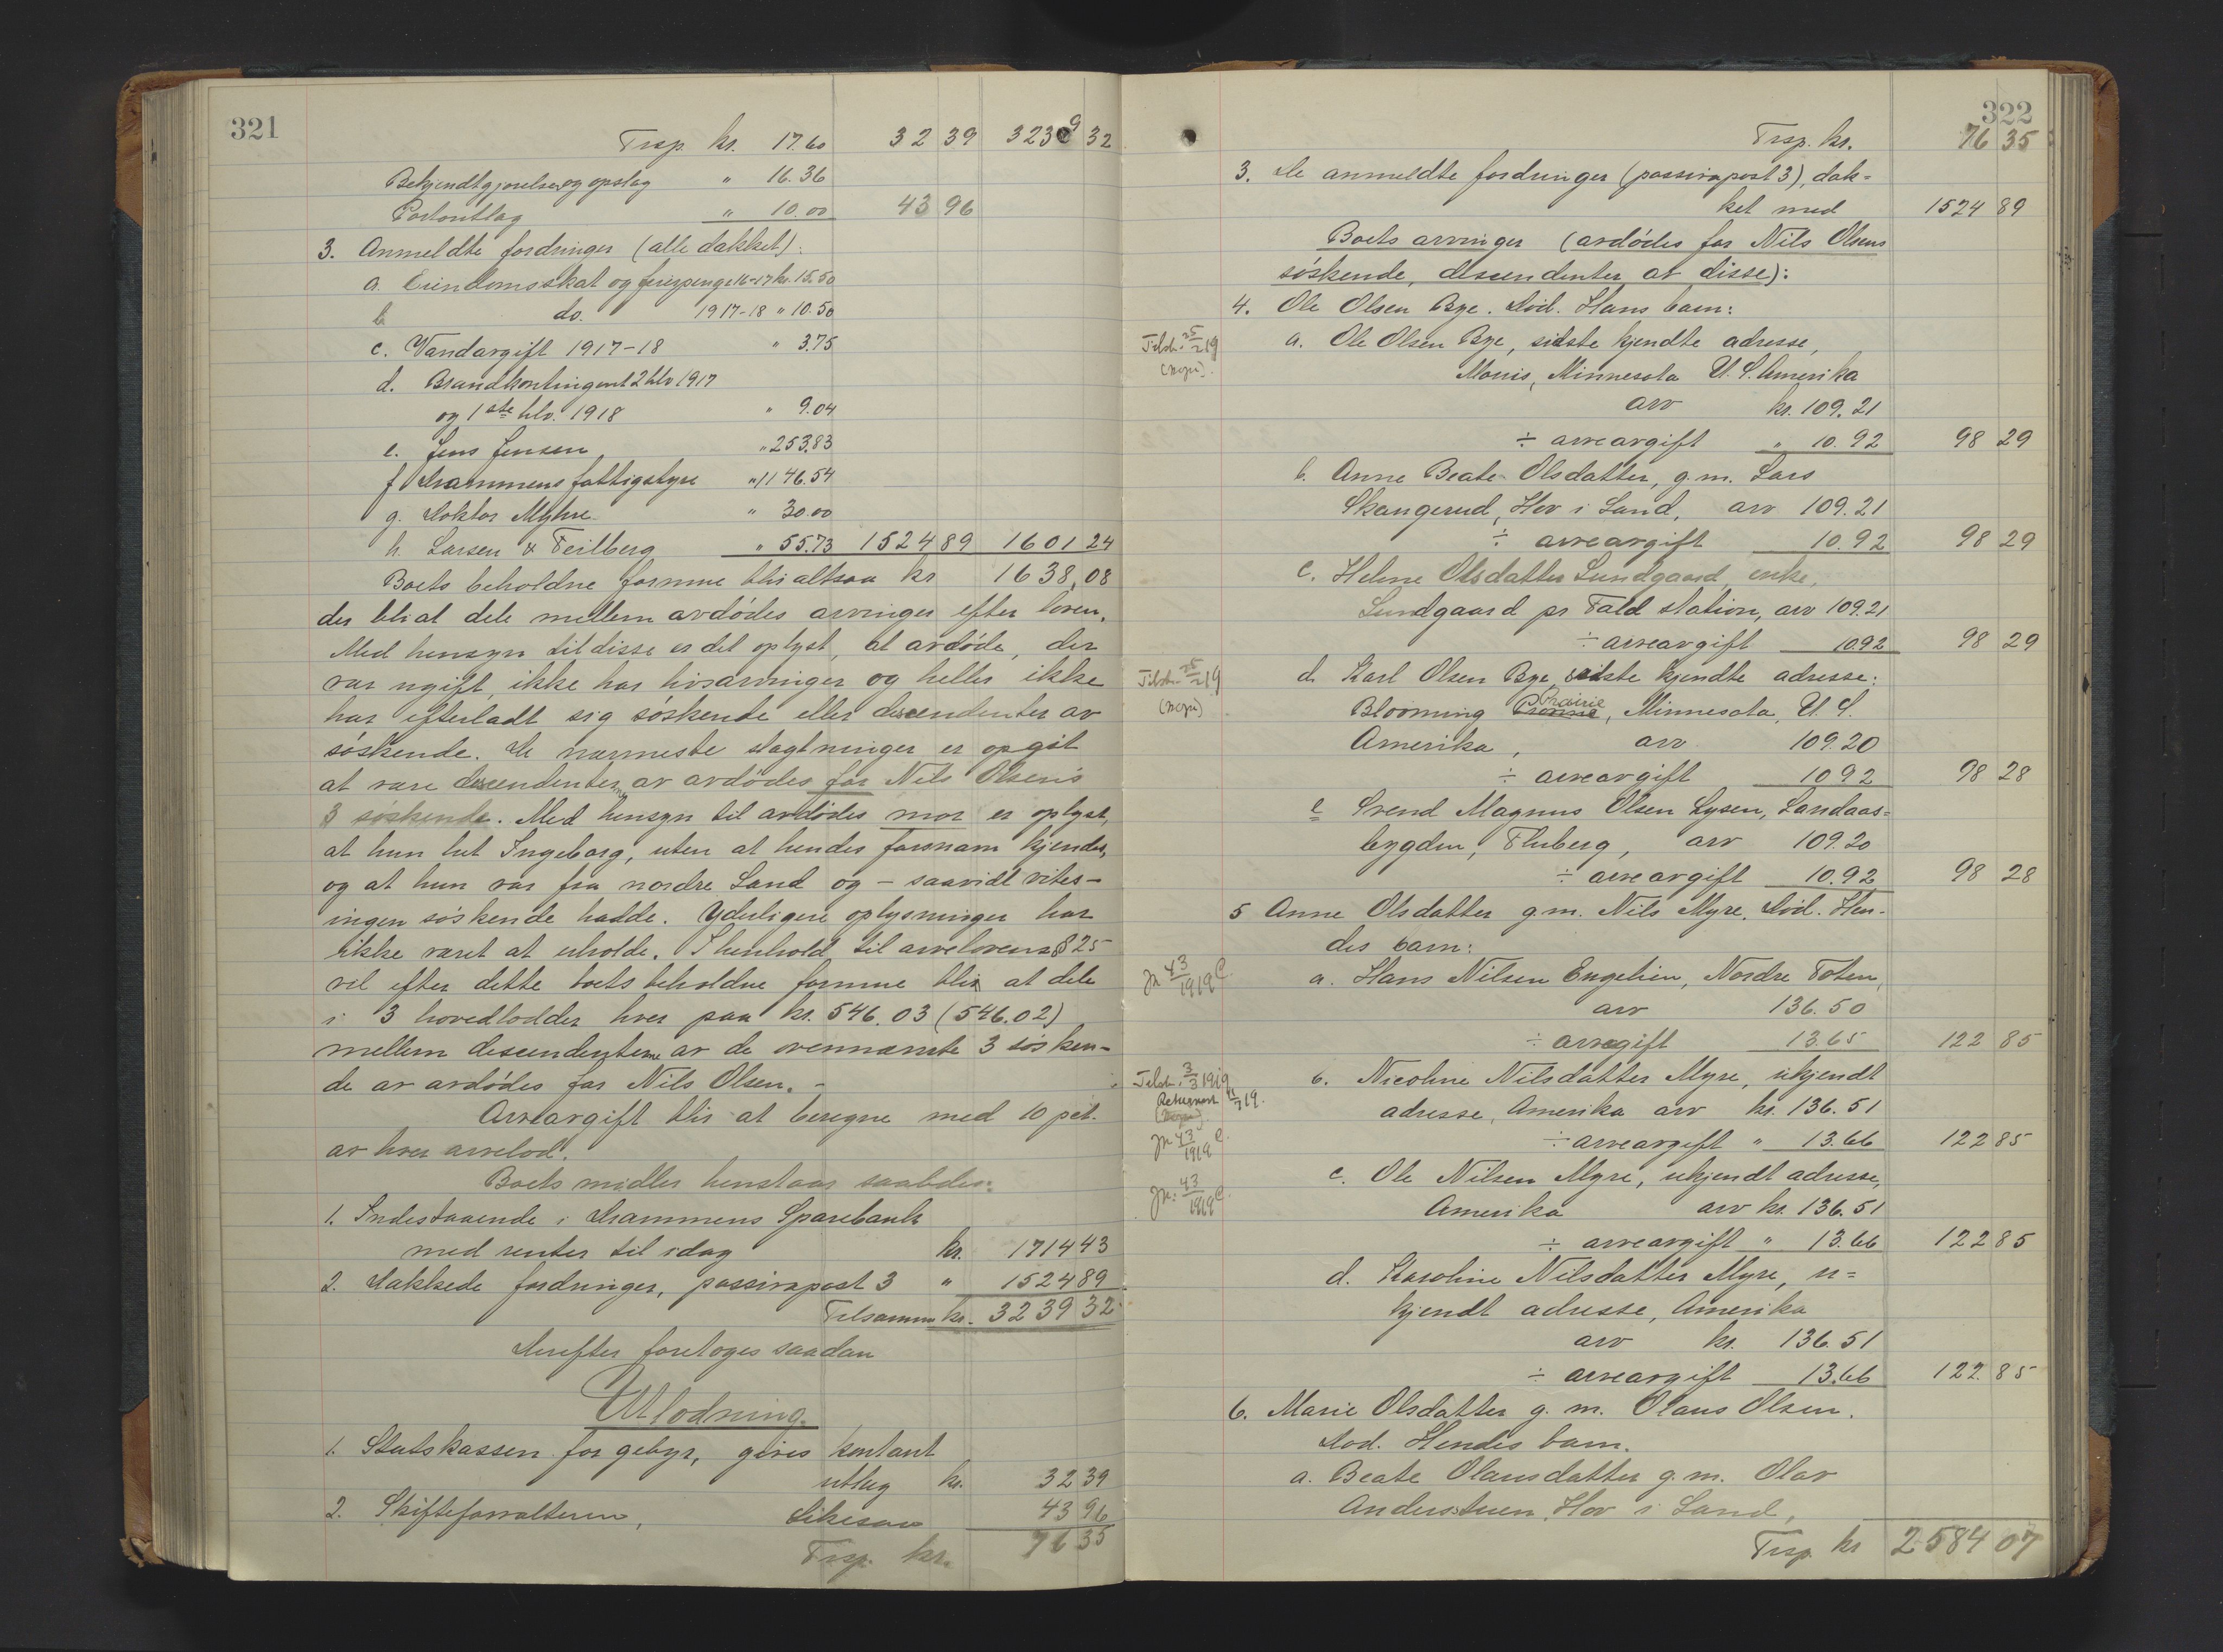 321
Trsp. kr. 17.60 32 39 3239 32
Bekjendtgjørelser og opslag " 16.36
Portoutlag " 10.00 43 96
3. Anmeldte fordringer (alle dækket):
a. Eiendomsskat og feiepenge 16-17 kr. 15.50
b do. 1917-18 " 10.50
c. Vandavgift 1917-18 " 3.75
d. Brandkontingent 2 hlv 1917
og 1ste hlv. 1918 " 9.04
e. Jens Jensen " 253.83
f Drammens fattigstyre " 1146.54
g. Doktor Myhre " 30.00
h. Larsen & Feilberg " 55.73 1524 89 1601 24
Boets beholdne formue blir altsaa kr 1638,08
der blir at dele mellem avdødes arvinger efter loven.
Med hensyn til disse er det oplyst, at avdøde, der
var ugift, ikke har livsarvinger og heller ikke
har efterladt sig søskende eller descendenter av
søskende. De nærmeste slægtninger er opgit
at være descendenter av avdødes far Nils Olsen's
3 søskende. Med hensyn til avdødes mor er oplyst,
at hun het Ingeborg, uten at hendes farsnavn kjendes,
og at hun var fra nordre Land og - saavidt vites -
ingen søskende hadde. Yderligere oplysninger har
ikke været at erholde. I henhold til arvelovens § 25
vil efter dette boets beholdne formue bli at dele
i 3 hovedlodder hver paa kr. 546.03 (546.02)
mellem descendenterne av de ovennævnte 3 søsken-
de av avdødes far Nils Olsen. -
Arveavgift blir at beregne med 10 pct.
av hver arvelod.
Boets midler henstaar saaledes:
1. Indestaaende i Drammens Sparebank
med renter til idag kr. 1714 43
2. Dækkede fordringer, passivapost 3 " 1524 89
Tilsammen kr. 3239 32
Derefter foretoges saadan
Utlodning.
1. Statskassen for gebyr, gives kontant
utlæg kr. 32 39
2. Skifteforvalteren, Likesaa 43 96
Trsp. kr. 76 35
322
Trsp. kr. 76 35
3. De anmeldte fordringer (passivapost 3), dæk=
ket med 1524 89
Boets arvinger (avdødes far Nils Olsens
søskende, descendenter av disse):
4. Ole Olsen Bye. Død. Hans barn:
Tilskr. 25/2 19
(kopi).
a. Ole Olsen Bye, sidste kjendte adresse,
Morris, Minnesota U. S. Amerika
arv kr. 109.21
÷ arveavgift " 10.92 98 29
b. Anne Beate Olsdatter, g.m. Lars
Skangerud, Hov i Land, arv 109.21
÷ arveavgift 10.92 98 29
c. Helene Olsdatter Lundgaard, enke,
Lundgaard pr Fald station, arv 109.21
÷ arveavgift 10.92 98 29
Tilskr. 25/2 19
(kopi)
d. Karl Olsen Bye sidste kjendte adresse:
Blooming Prairie, Minnesota, U. S.
Amerika, arv 109.20
÷ arveavgift 10 92 98 28
e Svend Magnus Olsen Lysen, Landaas=
bygden, Fluberg, arv 109.20
÷ arveavgift 10.92 98 28
5 Anne Olsdatter g.m. Nils Myre. Død. Hen-
des barn:
Jr 43/1919 C.
a. Hans Nilsen Engelien, Nordre Toten,
arv 136.50
÷ arvegift 13.65 122 85
Tilskr. 3/3 1919
Returnert 19.
(kopi).
Jr 43/1919 C.
b. Nicoline Nilsdatter Myre, ukjendt
adresse, Amerika arv kr. 136.51
÷ arveavgift " 13.66 122 85
Jr: 43/1919 C.
c. Ole Nilsen Myre, ukjendt adresse,
Amerika arv kr. 136.51
÷ arveavgift " 13.66 122 85
d. Karoline Nilsdatter Myre, u=
kjendt adresse, Amerika
arv kr. 136.51
÷ arveavgift 13.66 122 85
6. Marie Olsdatter g. m. Olaus Olsen.
Død. Hendes barn.
a. Beate Olausdatter g.m. Olav
Anderstuen, Hov i Land,
Trsp. kr 2584 07